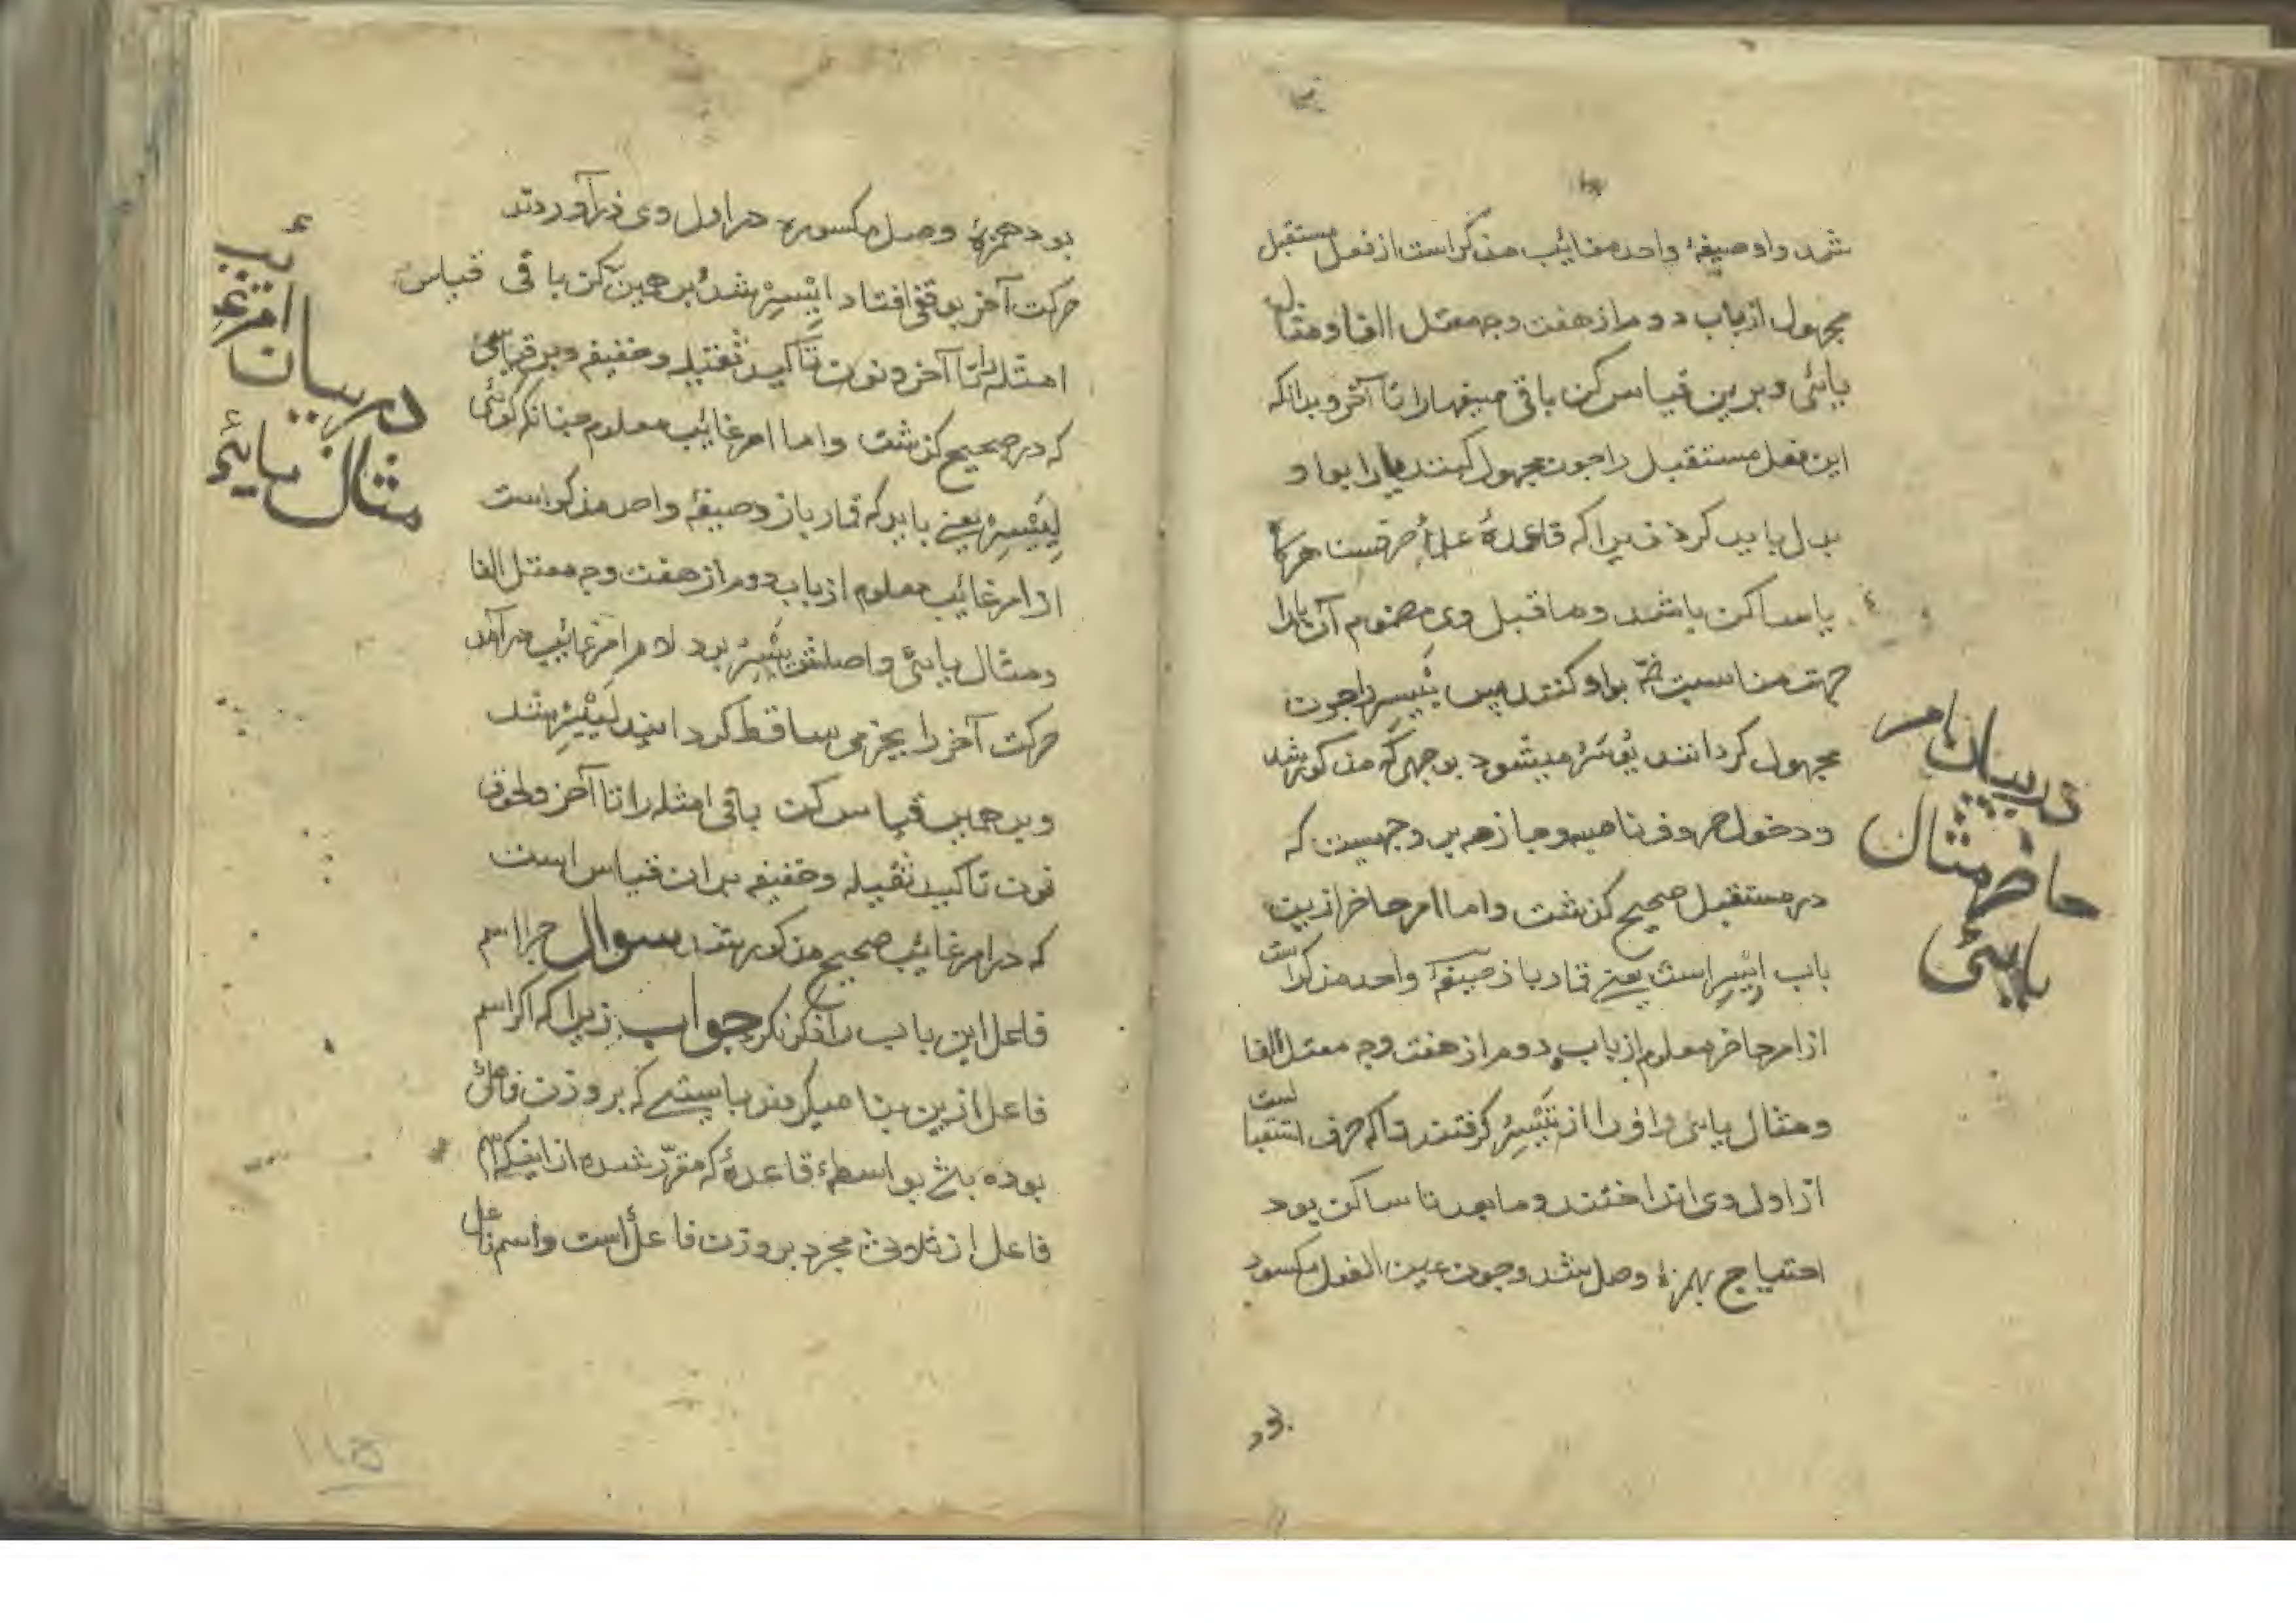 شد و او صیغهٔ واحد مغایب مذکر است از فعل مستقبل
مجهول از باب دوم از هفت وجه معتل الفا و مثال
یائی و برین قیاس کن باقی صیغها را تا آخر و بدانکه
این فعل مستقبل را چون مجهول کنند یا را بواو
بدل باید کرد زیرا که قاعدهٔ علم صرفست هر کا
یا ساکن باشد و ماقبل وی مضموم آن یا را
جهت مناسبت ضمه بواو کنند پس یَیْسِرُ را چون
مجهول کردانند یُوسَرُ میشود بوجهی که مذکور شد
و دخول حروف ناصبه و جازمه بر وجهیست که
در مستقبل صحیح کذشت و اما امر حاضر ازین
باب اِیْسِر است یعنی قمار باز صیغهٔ واحد مذکر است
از امر حاضر معلوم از باب دوم از هفت وجه معتل الفا
و مثال یائی و او را از تَیْسِرُ کرفتند تا که حرف استقبا لست
از اول وی انداختند و مابعد تا ساکن بود
احتیاج بهمزهٔ وصل شد و چون عین الفعل مکسور
در بیان امر
حاضر مثال
یایی
بود همزهٔ وصل مکسوره در اول وی در آوردند
حرکت آخر بوقفی افتاد اِیْسِرْ شد بر همین کن باقی قیاس
امثله را تا آخر و نون تأکید ثقیله و خفیفه و بر قیاسی
که در صحیح کذشت و اما امر غایب معلوم چنانکه کوئی
لِیَیْسِرْ یعنی باید که قمار بازد صیغهٔ واحد مذکر است
از امر غایب معلوم از باب دوم از هفت وجه معتل الفا
و مثال یایئ و اصلش یَیْسِرُ بود لام امر غایب در آمد
حرکت آخر را بجزمی ساقط کردانید لِیَیْسِرْ شد
و بر همین قیاس کن باقی امثله را تا آخر و لحوق
نون تاکید ثقیله و خفیفه بران قیاس است
که در امر غایب صحیح مذکور شد سوال چرا اسم
فاعل این باب را ذکر نکرد جواب زیرا که اکر اسم
فاعل ازین بنا میکردند بایستی که بر وزن فاعل
بوده باشد بواسطهٔ قاعدهٔ که مقرّر شده از اینکه اسم
فاعل از ثلاثی مجرد بر وزن فاعل است و اسم فاعل
در بیان امر غایب
مثال یایئ